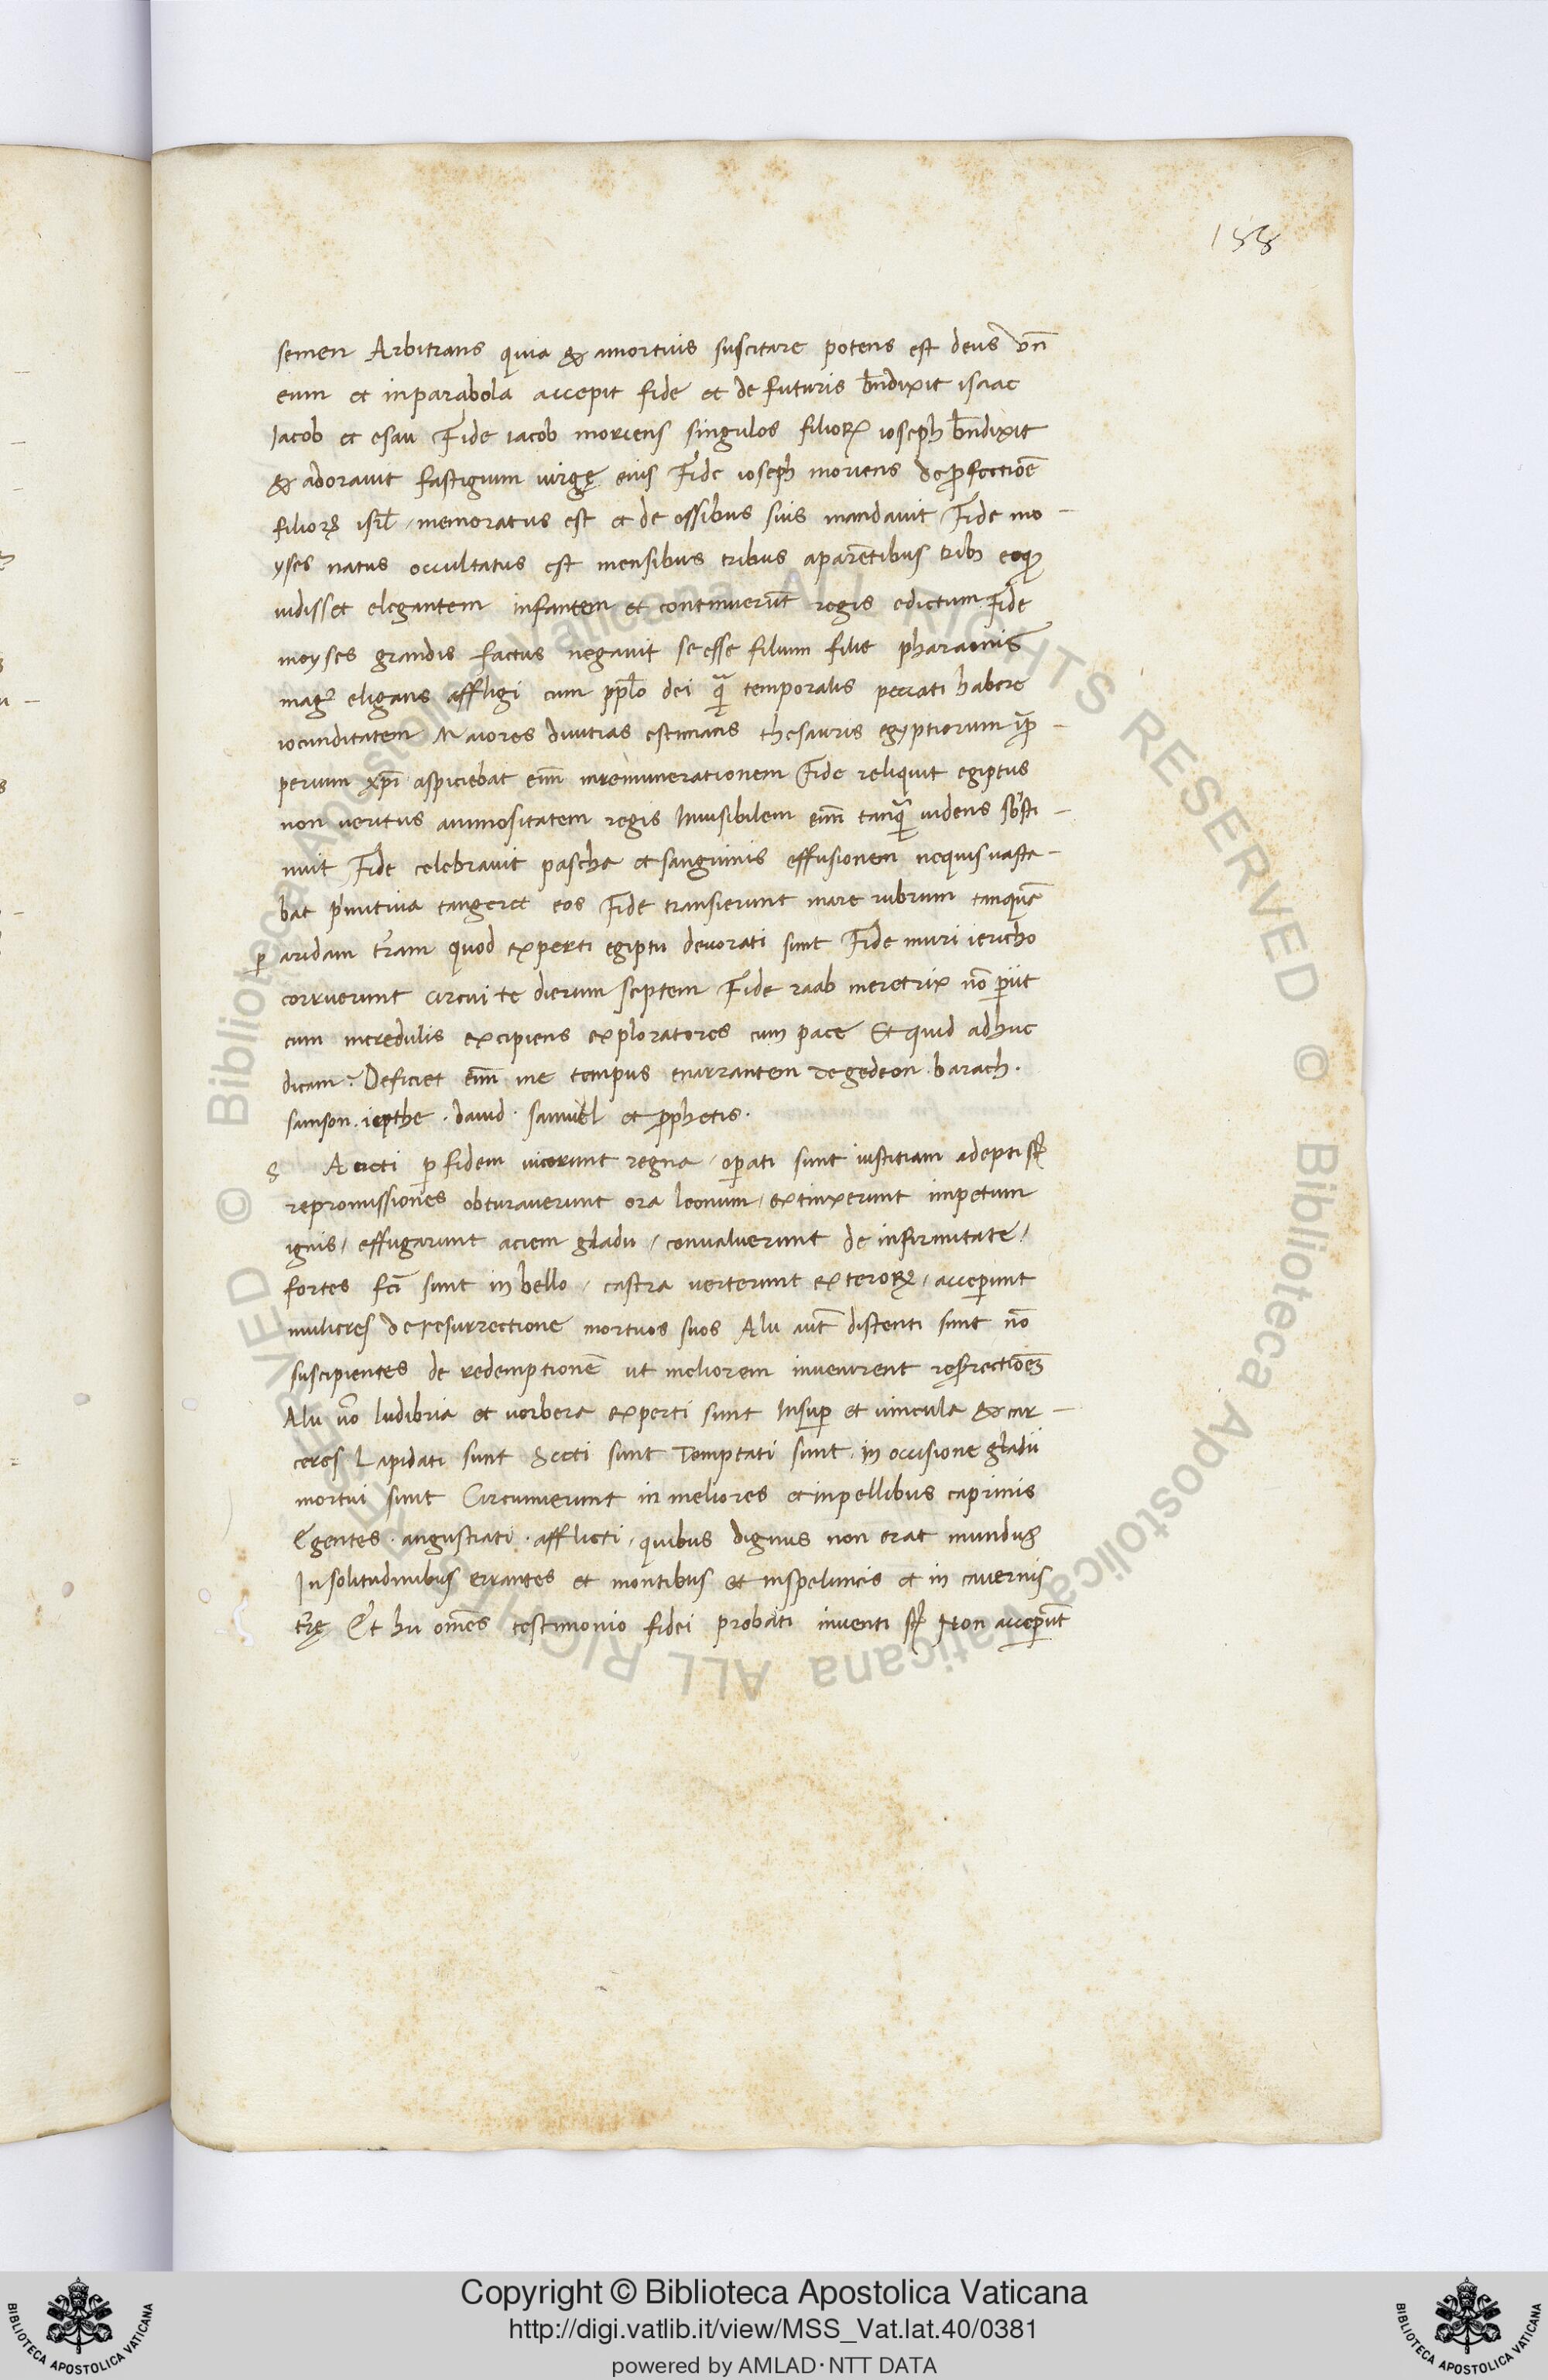 188
semen Arbitrans quia & amortuis suscitare potens est deus vñ
eum et inparabolā accepit fide et de futuris bn̄dixit isaac
Iacob et esau Fide iacob moriens singulos filioꝝ ioseph bn̄dixit
& adorauit fastigium uirgę eius Fide ioseph moriens de ꝓfectiōe
filioꝝ isrl̄ / memoratus est et de ossibus suis mandauit Fide mo-
yses natus occultatus est mensibus tribus aparētibus trib eoqꝫ
uidisset elegantem infantem et continuerūt regis edictum Fide
moyses grandis factus negauit se esse filium filie pharaonis
magꝭ eligans affligi cum ppl̄o dei quā temporalis peccati habere
iocunditatem Maiores diuitias estimans thesauris egyptiorum
perium xp̄i aspiciebat eīm inremunerationem Fide reliquit egiptus
non ueritus animositatem regis Inuisibilem eīm tanquā uidens sꝰsti-
nuit Fide celebrauit pascha et sanguinis effusionem nequis uasta-
bat primitiua tangeret eos Fide transierunt mare rubrum tanquē
ꝑ aridam tr̄am quod experti egiptii deuorati sunt Fide muri iericho
corruerunt circuite dierum septem Fide raab meretrix nō ꝑiit
cum incredulis excipiens exploratores cum pace Et quid adhuc
dicam? Deficiet eīm me tempus enarrantem de gedeon . barach .
samson . iepthe . dauid . samuel et ꝓphetis .
S Ancti ꝑ fidem uicerunt regna / oꝑati sunt iustitiam adepti sꝭ
repromissiones obturauerunt ora leonum / extinxerunt impetum
ignis / effugarunt aciem gladii / conualuerunt de infirmitate /
fortes fc̄i sunt in bello / castra uerterunt exteroꝝ / acceꝑunt
mulieres de resurrectione mortuos suos Alii aut̄ distenti sunt nō
suscipientes de redemptionē ut meliorem inuenirent resꝰrectiōem
Alii uō ludibria et uerbera experti sunt Insuꝑ et uincula & car-
ceres Lapidati sunt Secti sunt Temptati sunt . in occisione gladii
mortui sunt Circumierunt in meliores et inpellibus caprinis
Egentes . angustiati . afflicti . quibus dignus non erat mundus
In solitudinibus errantes et montibus et inspeluncis et in cauernis
tr̄ę Et hii om̄es testimonio fidei probati inuenti sꝭ Non acceꝑūt
© Biblioteca Apostolica Vaticana ALL RIGHTS RESERVED © Biblioteca Apostolica Vaticana ALL RIGHTS RESERVED
Copyright © Biblioteca Apostolica Vaticana
http://digi.vatlib.it/view/MSS_Vat.lat.40/0381
powered by AMLAD·NTT DATA
BIBLIOTECA APOSTOLICA VATICANA
BIBLIOTECA APOSTOLICA VATICANA